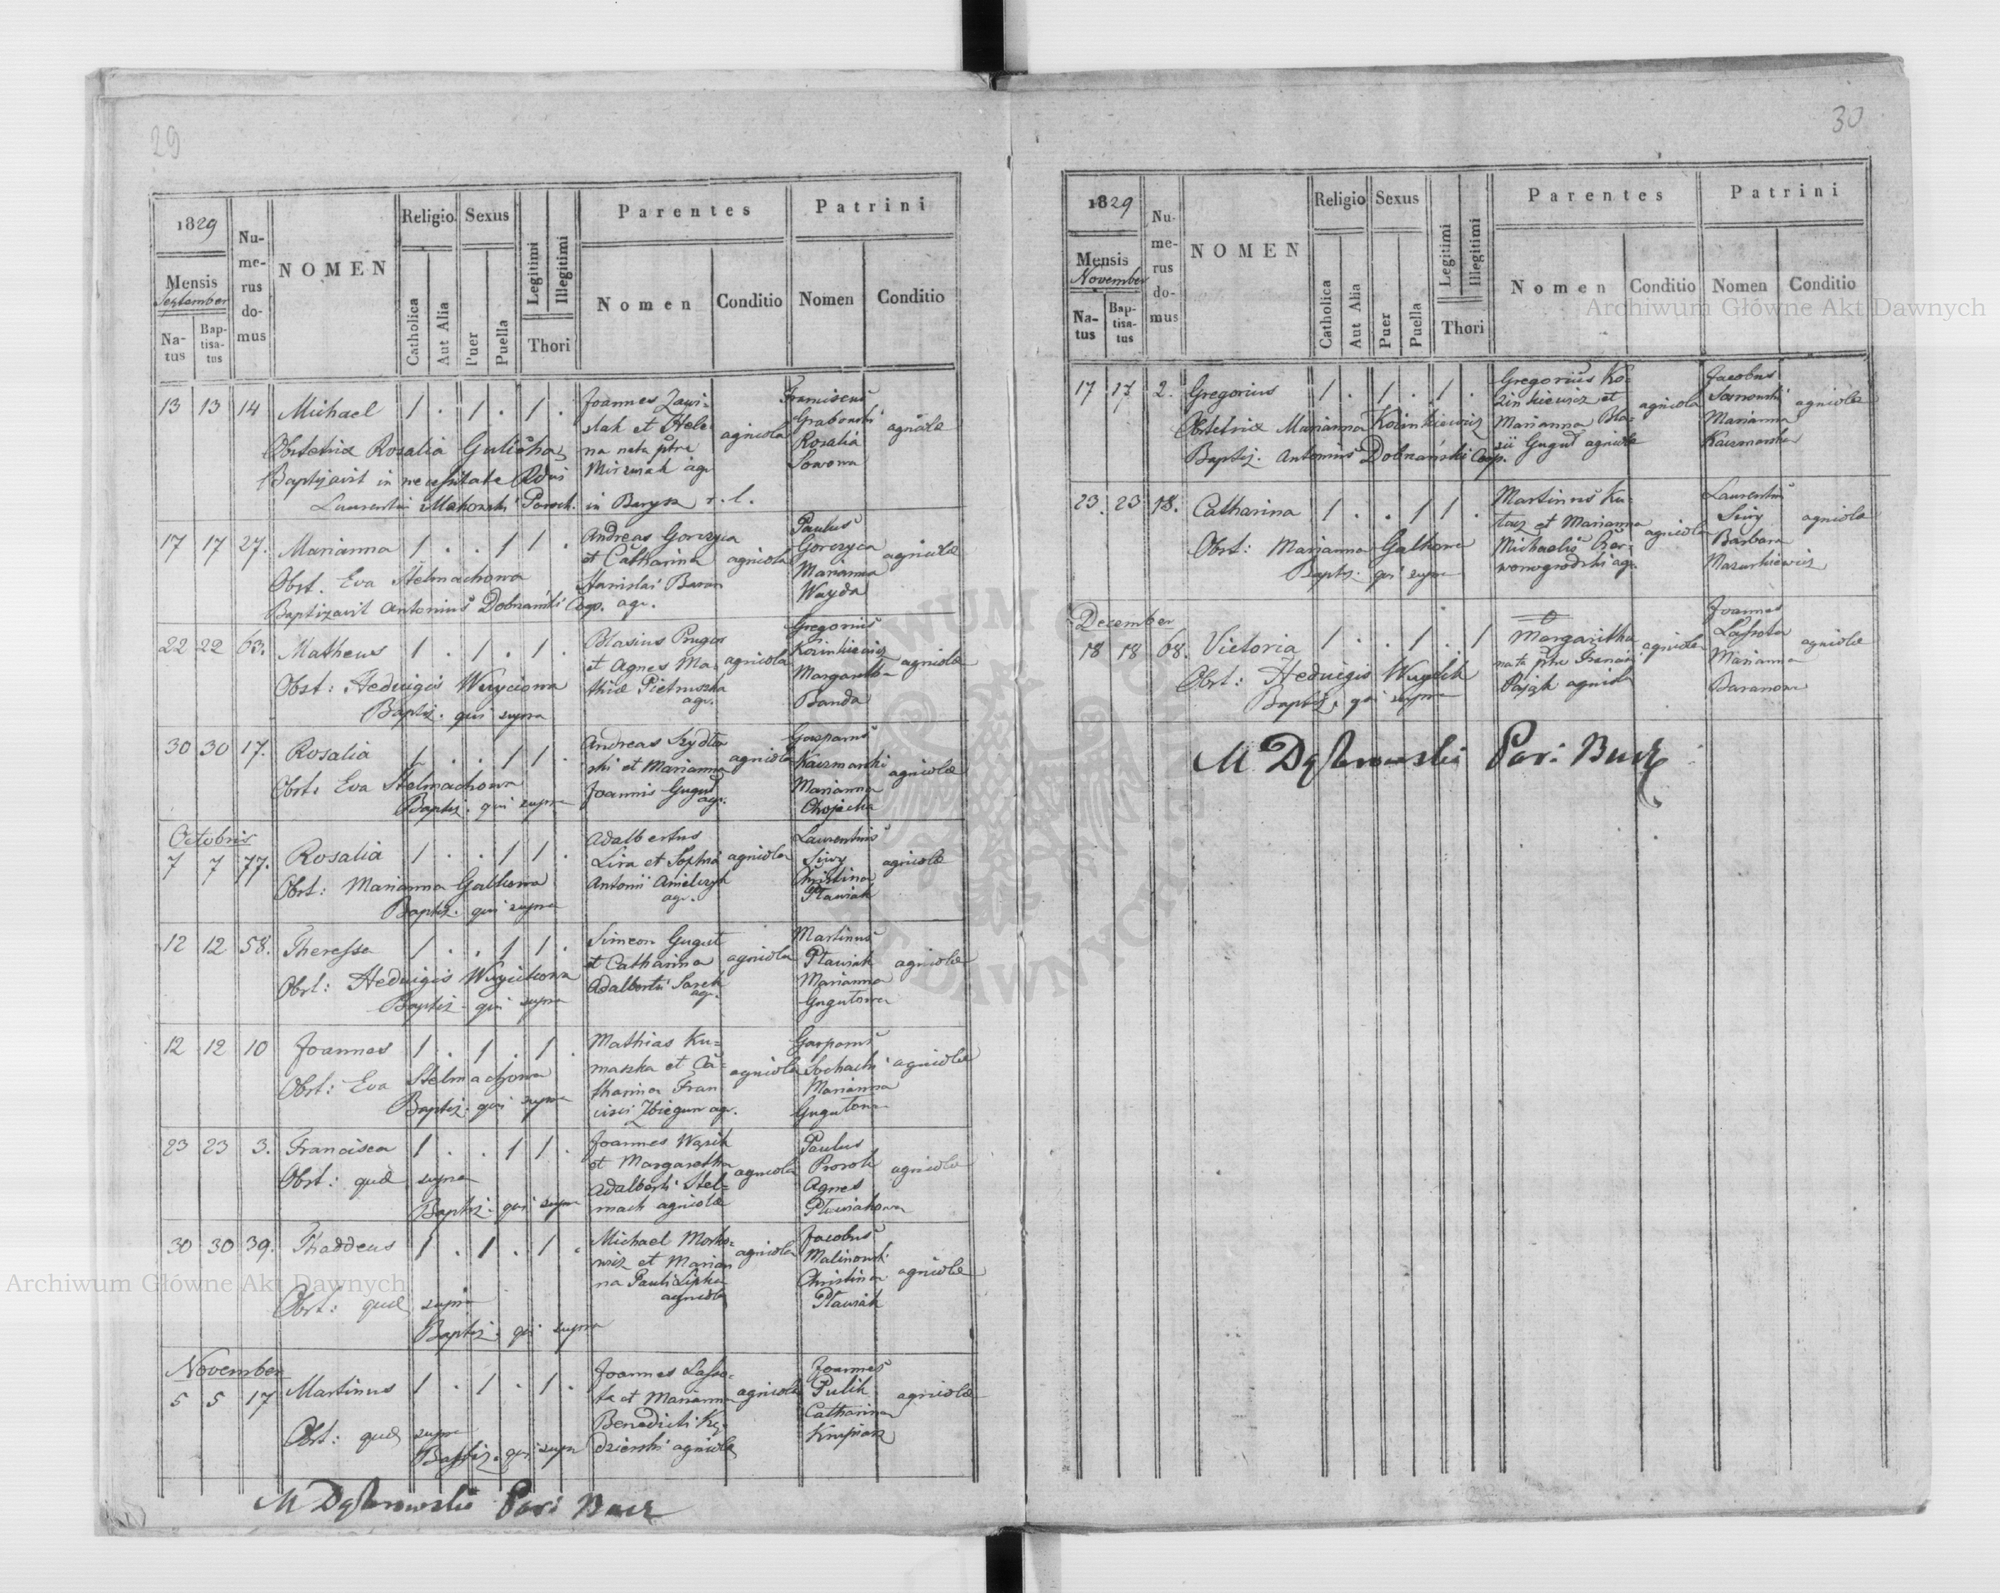 29
1829
Mensis
September
Natus
Baptisatus
Numerus domus
NOMEN
Religio
Catholica
Aut Alia
Sexus
Puer
Puella
Legitimi
Illegitimi
Thori
Parentes
Nomen
Conditio
Patrini
Nomen
Conditio
13 13 14 Michael 1 . 1 . 1 .
Obstetrix Rosalia
Baptizavit in necessitate
Laurentii Makowski Paroch. in Barysz r. l.
Joannes Zawi-
slak et Hele-
na nata ptre
agr
agricola
Franciscus
Grabowski
Rosalia
Sowowa
agricolae
17 17 27. Marianna 1 . . 1 1 .
Obst. Eva Stelmachowa
Baptizavit Antonius Dobrzański Coop.
Andreas Gorczyca
et Catharina
Stanislai Baran
agr.
agricola
Paulus
Gorczyca
Marianna
Wayda
agricolae
22 22 63. Matheus 1 . 1 . 1 .
Obst: Hedvigis
Baptiz. qui supra
Blasius
et Agnes Ma-
thiae Pietruszka
agr.
agricola
Gregorius
Kozinkiewicz
Margaretha
Banda
agricolae
30 30 17. Rosalia 1 . . 1 1 .
Obst. Eva Stelmachowa
Baptiz. qui supra
Andreas Szydło-
ski et Marianna
Joannis Guguł
agr.
agricola
Gasparus
Kaczmarski
Marianna
Chojecka
agricolae
Octobris
7 7 77. Rosalia 1 . . 1 1 .
Obst: Marianna Galkowa
Baptiz. qui supra
Adalbertus
Lira et Sophia
Antonii
agr.
agricola
Laurentius
Siwy
Christina
Ptawiak
agricolae
12 12 58. Theressa 1 . . 1 1 .
Obst: Hedvigis
Baptiz. qui supra
Simeon Guguł
et Catharina
Adalberti
agr.
agricola
Martinus
Ptawiak
Marianna
Gugułowa
agricolae
12 12 10 Joannes 1 . 1 . 1 .
Obst: Eva Stelmachowa
Baptiz. qui supra
Mathias Ku-
maszka et Ca-
tharina Fran-
cisci Zbiegun agr.
agricola
Gasparus
Sochacki
Marianna
Gugułowa
agricolae
23 23 3. Francisca 1 . . 1 1 .
Obst: quae supra
Baptiz. qui supra
Joannes Wąsik
et Margaretha
Adalberti Stel-
mach agricolae
agricola
Paulus
Prorok
Agnes
Ptawiakowa
agricolae
30 30 39. Thaddeus 1 . 1 . 1 .
Obst: quae supra
Baptiz. qui supra
Michael Morko-
wicz et Marian-
na Pauli Lipka
agricola
agricola
Jacobus
Malinowski
Christina
Ptawiak
agricolae
November
5 5 17 Martinus 1 . 1 . 1 .
Obst: quae supra
Baptiz. qui supra
Joannes Lasso-
ta et Marianna
Benedicti Kę-
dzierski agricola
agricola
Joannes
Pulik
Catharina
agricolae
M Dąbrowski Par:
30
1829
Mensis
November
Natus
Baptisatus
Numerus domus
NOMEN
Religio
Catholica
Aut Alia
Sexus
Puer
Puella
Legitimi
Illegitimi
Thori
Parentes
Nomen
Conditio
Patrini
Nomen
Conditio
17 17 2. Gregorius 1 . 1 . 1 .
Obstetrix Marianna Kozinkiewicz
Baptiz. Antonius Dobrzański Coop.
Gregorius Ko-
zinkiewicz et
Marianna Bla-
sii Guguł agricolae
agricola
Jacobus
Sosnowski
Marianna
Kaczmarska
agricolae
23. 23 18. Catharina 1 . . 1 1 .
Obst: Marianna Galkowa
Baptiz. qui supra
Martinus Ku-
tasz et Marianna
Michaelis
agr.
agricola
Laurentius
Siwy
Barbara
Mazurkiewicz
agricolae
December
18 18 68. Victoria 1 . . 1 . 1
Obst: Hedvigis
Baptiz. qui supra
0
Margaritha
nata ptre
Pająk agricola
agricola
Joannes
Lassota
Marianna
Baranowa
agricolae
M Dąbrowski Par:
Archiwum Główne Akt Dawnych
Archiwum Główne Akt Dawnych
ARCHIWUM GŁÓWNE AKT DAWNYCH